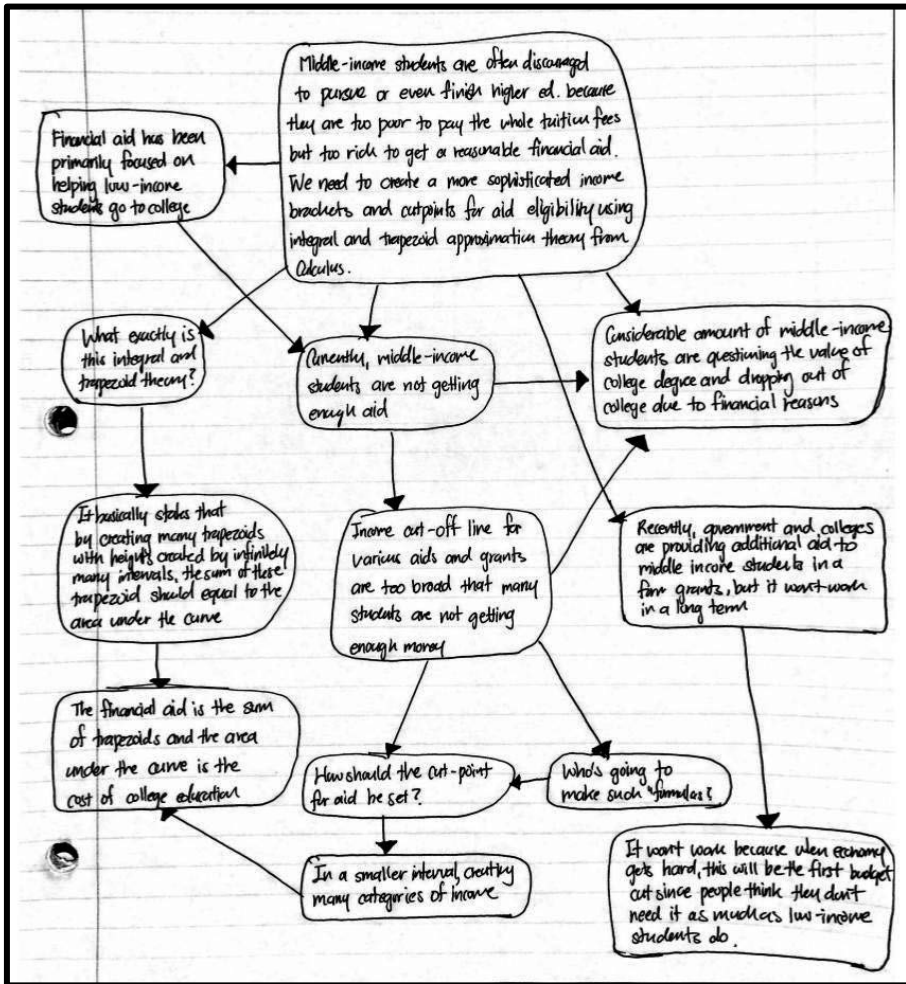 Middle-income students are often discouraged
to pursue or even finish higher ed. because
they are too poor to pay the whole tuition fees
but too rich to get a reasonable financial aid.
We need to create a more sophisticated income
brackets and cutpoints for aid eligibility using
integral and trapezoid approximation theory from
Calculus.
Financial aid has been
primarily focused on
helping low-income
students go to college
What exactly is
this integral and
trapezoid theory?
Currently, middle-income
students are not getting
enough aid
Considerable amount of middle-income
students are questioning the value of
college degree and dropping out of
college due to financial reasons
It basically states that
by creating many trapezoids
with heights created by infinitely
many intervals, the sum of these
trapezoid should equal to the
area under the curve
Income cut-off line for
various aids and grants
are too broad that many
students are not getting
enough money
Recently, government and colleges
are providing additional aid to
middle income students in a
form grants, but it won't work
in a long term
The financial aid is the sum
of trapezoids and the area
under the curve is the
cost of college education
How should the cut-point
for aid be set?
Who's going to
make such "formulas?
In a smaller interval, creating
many categories of income
It won't work because when economy
gets hard, this will be the first budget
cut since people think they don't
need it as much as low-income
students do.